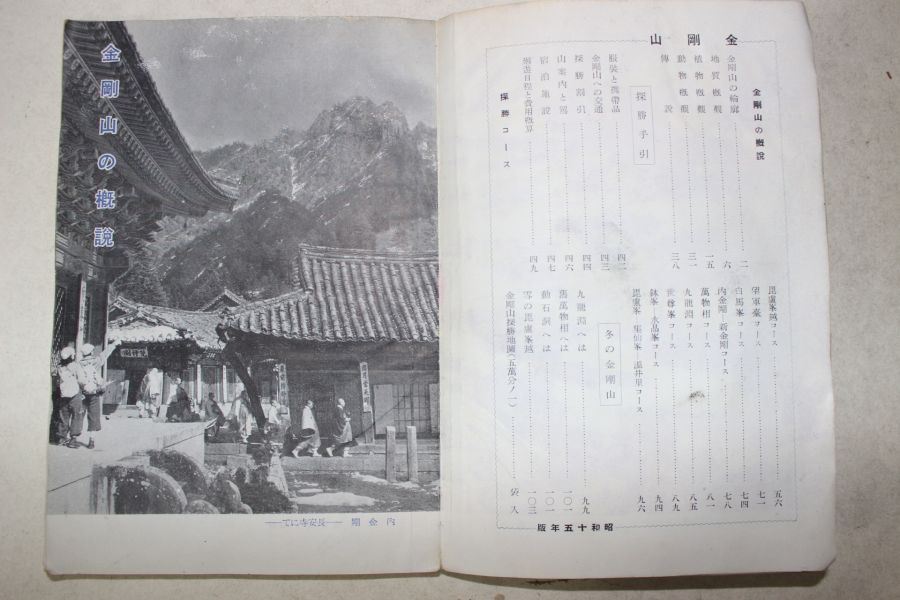 金剛山の槪說
内金剛 ―長安寺にて―
金剛山
金剛山の槪說
金剛山の輪廓……二
地質槪觀……六
植物槪觀……一五
動物槪觀……三一
傳說……三八
探勝手引
服裝と携帶品……四二
金剛山への交通……四三
探勝割引……四四
山案内と駕……四六
宿泊施設……四七
日程と費用槪算……四九
探勝コース
毘盧峯越コース……五六
望軍臺コース……七一
白馬峯コース……
内金剛―新金剛コース……七八
萬物相コース……八一
九龍淵コース……八五
世尊峯コース……八九
鉢峯、水晶峯コース……九四
毘盧峯、集仙峯、溫井里コース……九六
冬の金剛山
九龍淵へは……九九
舊萬物相へは……一〇一
動石洞へは……一〇一
雪の毘盧峯越……一〇三
金剛山探勝地圖(五萬分ノ一)……袋入
昭和十五年版